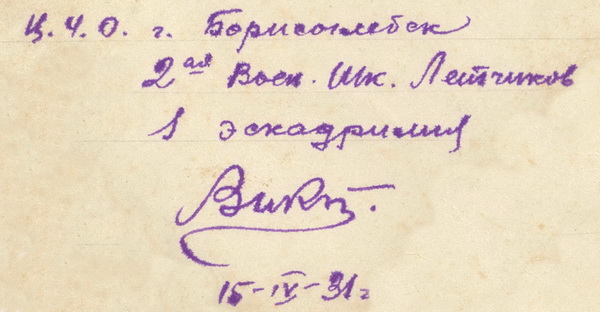 Ц.Ч.О. г. Борисоглебск
2ая Воен. Шк. Летчиков
1 эскадрилия
Викт.
15-IV-31г